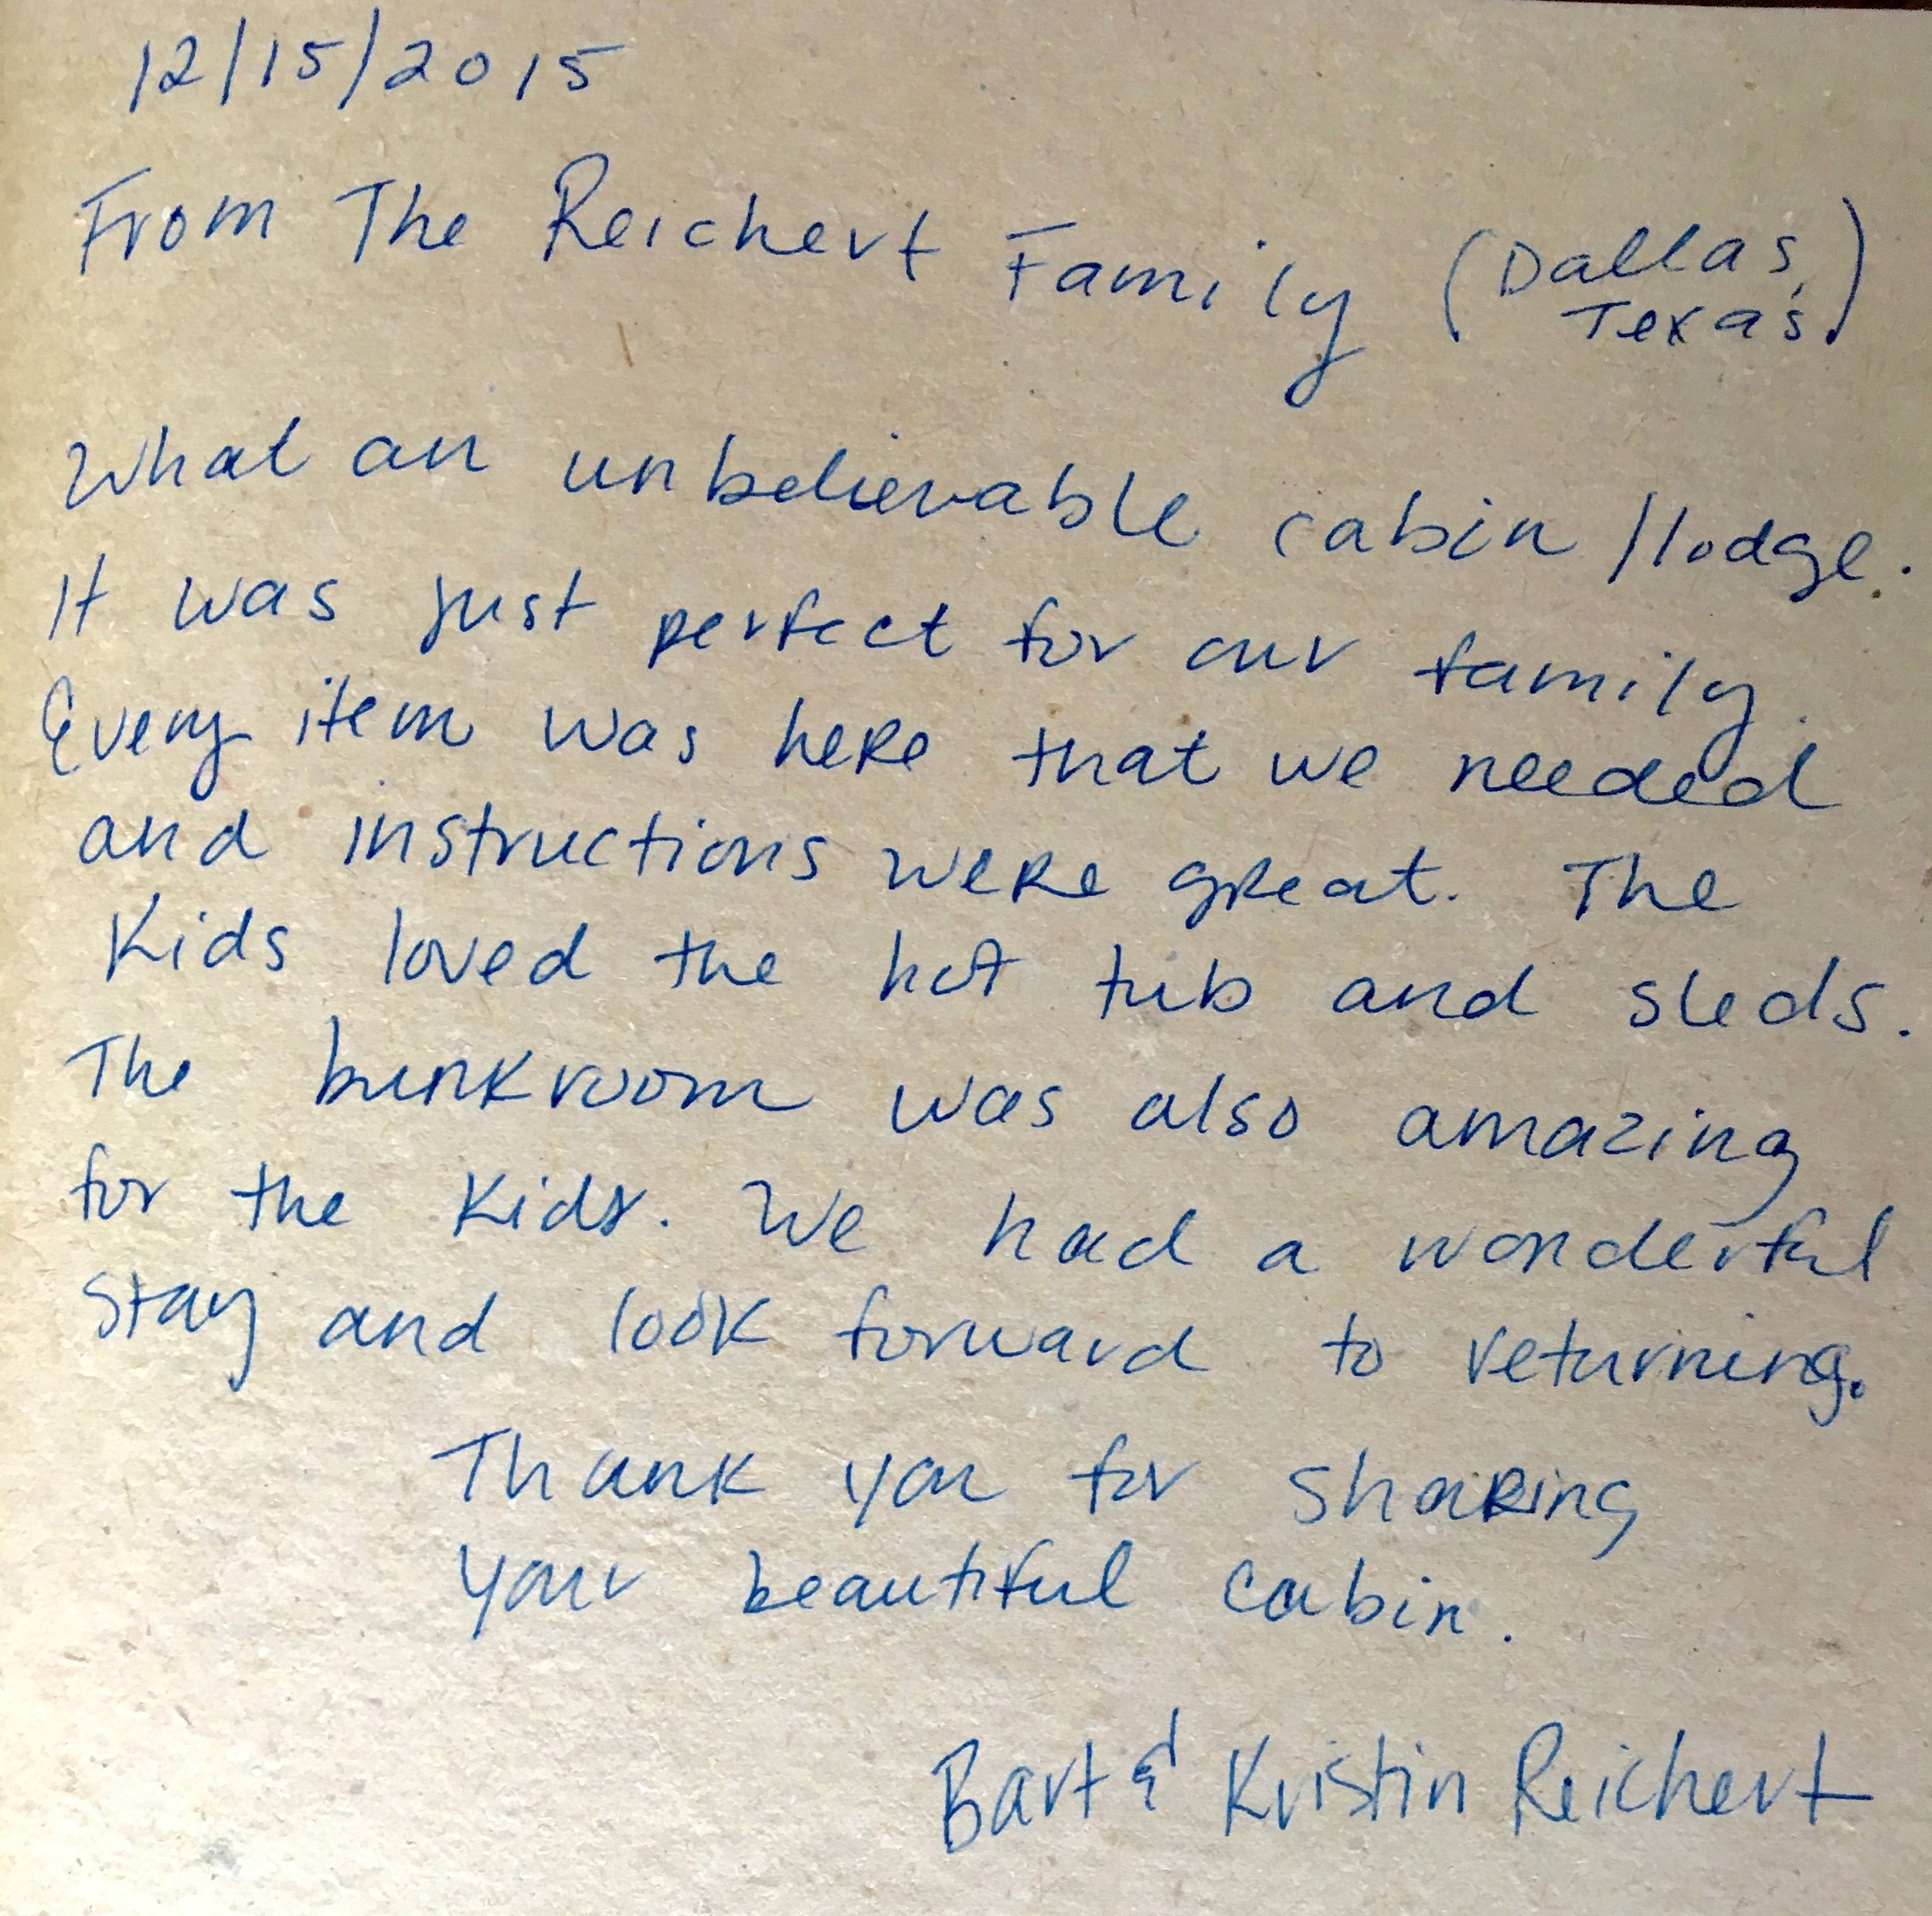 12/15/2015
From The Reichert Family (Dallas,
Texas)
What an unbelievable cabin/lodge.
It was just perfect for our family.
Every item was here that we needed
and instructions were great. The
Kids loved the hot tub and sleds.
The bunkroom was also amazing
for the Kids. We had a wonderful
stay and look forward to returning.
Thank you for sharing
your beautiful cabin.
Bart & Kristin Reichert